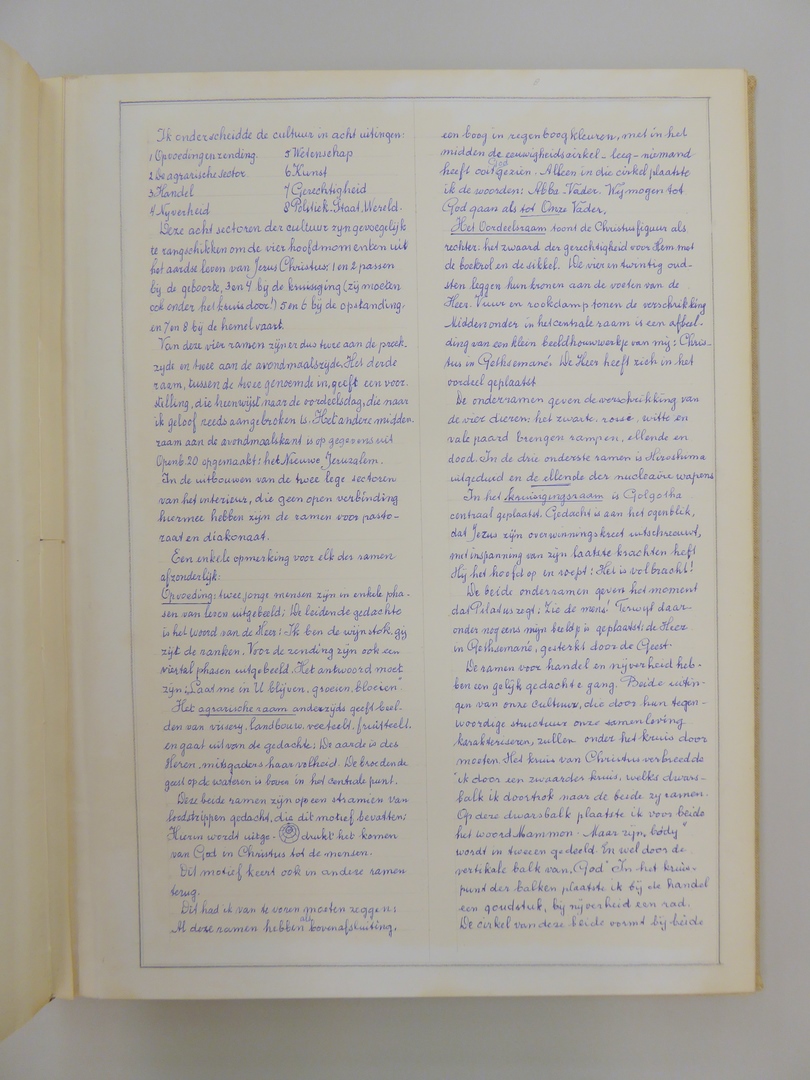 Ik onderscheidde de cultuur in acht uitingen:
1 Opvoeding en zending. 5 Wetenschap
2 De agrarische sector. 6 Kunst
3 Handel 7 Gerechtigheid
4 Nijverheid 8 Politiek-Staat, Wereld.
Deze acht sectoren der cultuur zijn gevoegelijk
te rangschikken om de vier hoofdmomenten uit
het aardse leven van Jezus Christus; 1 en 2 passen
bij de geboorte, 3 en 4 bij de kruisiging (zij moeten
ook onder het kruis door!) 5 en 6 bij de opstanding,
en 7 en 8 bij de hemelvaart.
Van deze vier ramen zijn er dus twee aan de preek-
zijde en twee aan de avondmaalszijde. Het derde
raam, tussen de twee genoemde in, geeft een voor-
stelling, die heenwijst naar de oordeelsdag, die naar
ik geloof reeds aangebroken is. Het andere midden-
raam aan de avondmaalskant is op gegevens uit
Openb. 20 opgemaakt: het Nieuwe Jeruzalem.
In de uitbouwen van de twee lege sectoren
van het interieur, die geen open verbinding
hiermee hebben zijn de ramen voor pasto-
raat en diakonaat.
Een enkele opmerking voor elk der ramen
afzonderlijk:
Opvoeding: twee jonge mensen zijn in enkele pha-
sen van leven uitgebeeld; De leidende gedachte
is het woord van de Heer: Ik ben de wijnstok, gij
zijt de ranken. Voor de zending zijn ook een
viertal phasen uitgebeeld. Het antwoord moet
zijn: „Laat me in U blijven, groeien, bloeien"
Het agrarische raam anderzijds geeft beel-
den van visserij, landbouw, veeteelt, fruitteelt.
en gaat uit van de gedachte: De aarde is des
Heren, mitsgaders haar volheid. De broedende
geest op de wateren is boven in het centrale punt.
Deze beide ramen zijn op een stramien van
loodstrippen gedacht, die dit motief bevatten;
Hierin wordt uitge- drukt het komen
van God in Christus tot de mensen.
Dit motief keert ook in andere ramen
terug.
Dit had ik van te voren moeten zeggen:
Al deze ramen hebben als bovenafsluiting,
een boog in regenboogkleuren, met in het
midden de eeuwigheidscirkel - leeg - niemand
heeft God ooit gezien. Alleen in die cirkel plaatste
ik de woorden: Abba-Vader. Wij mogen tot
God gaan als tot Onze Vader.
Het Oordeelsraam toont de Christusfiguur als
rechter. het zwaard der gerechtigheid voor Hem met
de boekrol en de sikkel. De vier en twintig oud-
sten leggen hun kronen aan de voeten van de
Heer. Vuur en rookdamp tonen de verschrikking
Midden onder in het centrale raam is een afbeel-
ding van een klein beeldhouwwerkje van mij: Chris-
tus in Gethsemané. De Heer heeft zich in het
oordeel geplaatst
De onderramen geven de verschrikking van
de vier dieren: het zwarte, rosse, witte en
vale paard brengen rampen, ellende en
dood. In de drie onderste ramen is Hiroshima
uitgeduid en de ellende der nucleaire wapens
In het kruisigingsraam is Golgotha
centraal geplaatst. Gedacht is aan het ogenblik,
dat Jezus zijn overwinningskreet uitschreeuwt,
met inspanning van zijn laatste krachten heft
Hij het hoofd op en roept: Het is volbracht!
De beide onderramen geven het moment
dat Pilatus zegt: Zie de mens! Terwijl daar-
onder nog eens mijn beeld is geplaatst: de Heer
in Gethsemané, gesterkt door de Geest.
De ramen voor handel en nijverheid heb-
ben een gelijk gedachte gang. Beide uitin-
gen van onze Cultuur, die door hun tegen-
woordige structuur onze samenleving
karakteriseren, zullen onder het kruis door
moeten. Het kruis van Christus verbreedde
ik door een zwaarder kruis, welks dwars-
balk ik doortrok naar de beide zijramen.
Op deze dwarsbalk plaatste ik voor beide
het woord Mammon. Maar zijn „body"
wordt in tweeën gedeeld. En wel door de
vertikale balk van „God" In het kruis-
punt der balken plaatste ik bij de handel
een goudstuk, bij nijverheid een rad.
De cirkel van deze beide vormt bij beide